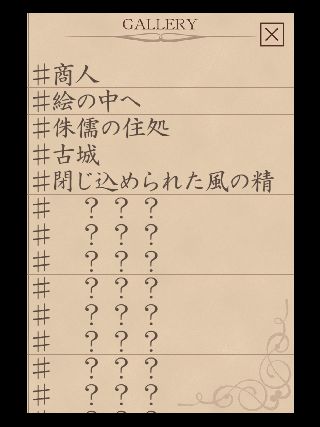 GALLERY
#商人
#絵の中へ
#侏儒の住処
#古城
#閉じ込められた風の精
# ? ? ?
# ? ? ?
# ? ? ?
# ? ? ?
# ? ? ?
# ? ? ?
# ? ? ?
# ? ? ?